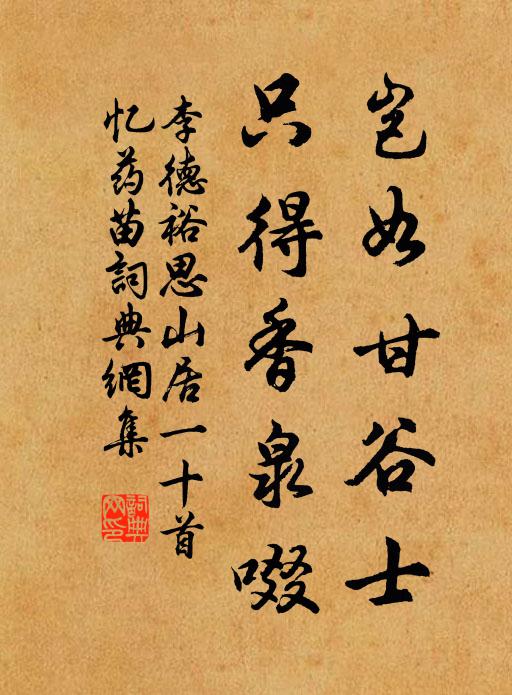 岂如甘谷士
只得香泉啜
李德裕思山居一十首
忆药苗詞典網集
詞典網印